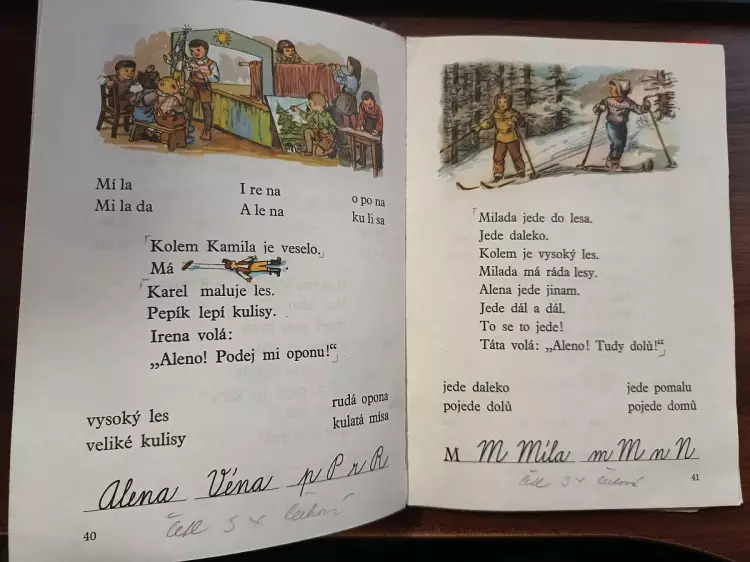 Mí la
Mi la da
I re na
A le na
o po na
ku li sa
Kolem Kamila je veselo.
Má
Karel maluje les.
Pepík lepí kulisy.
Irena volá:
„Aleno! Podej mi oponu!“
vysoký les
veliké kulisy
rudá opona
kulatá mísa
Alena Véna p P r R
5 x
40
Milada jede do lesa.
Jede daleko.
Kolem je vysoký les.
Milada má ráda lesy.
Alena jede jinam.
Jede dál a dál.
To se to jede!
Táta volá: „Aleno! Tudy dolů!“
jede daleko
pojede dolů
jede pomalu
pojede domů
M M Míla m M n N
5 x
41